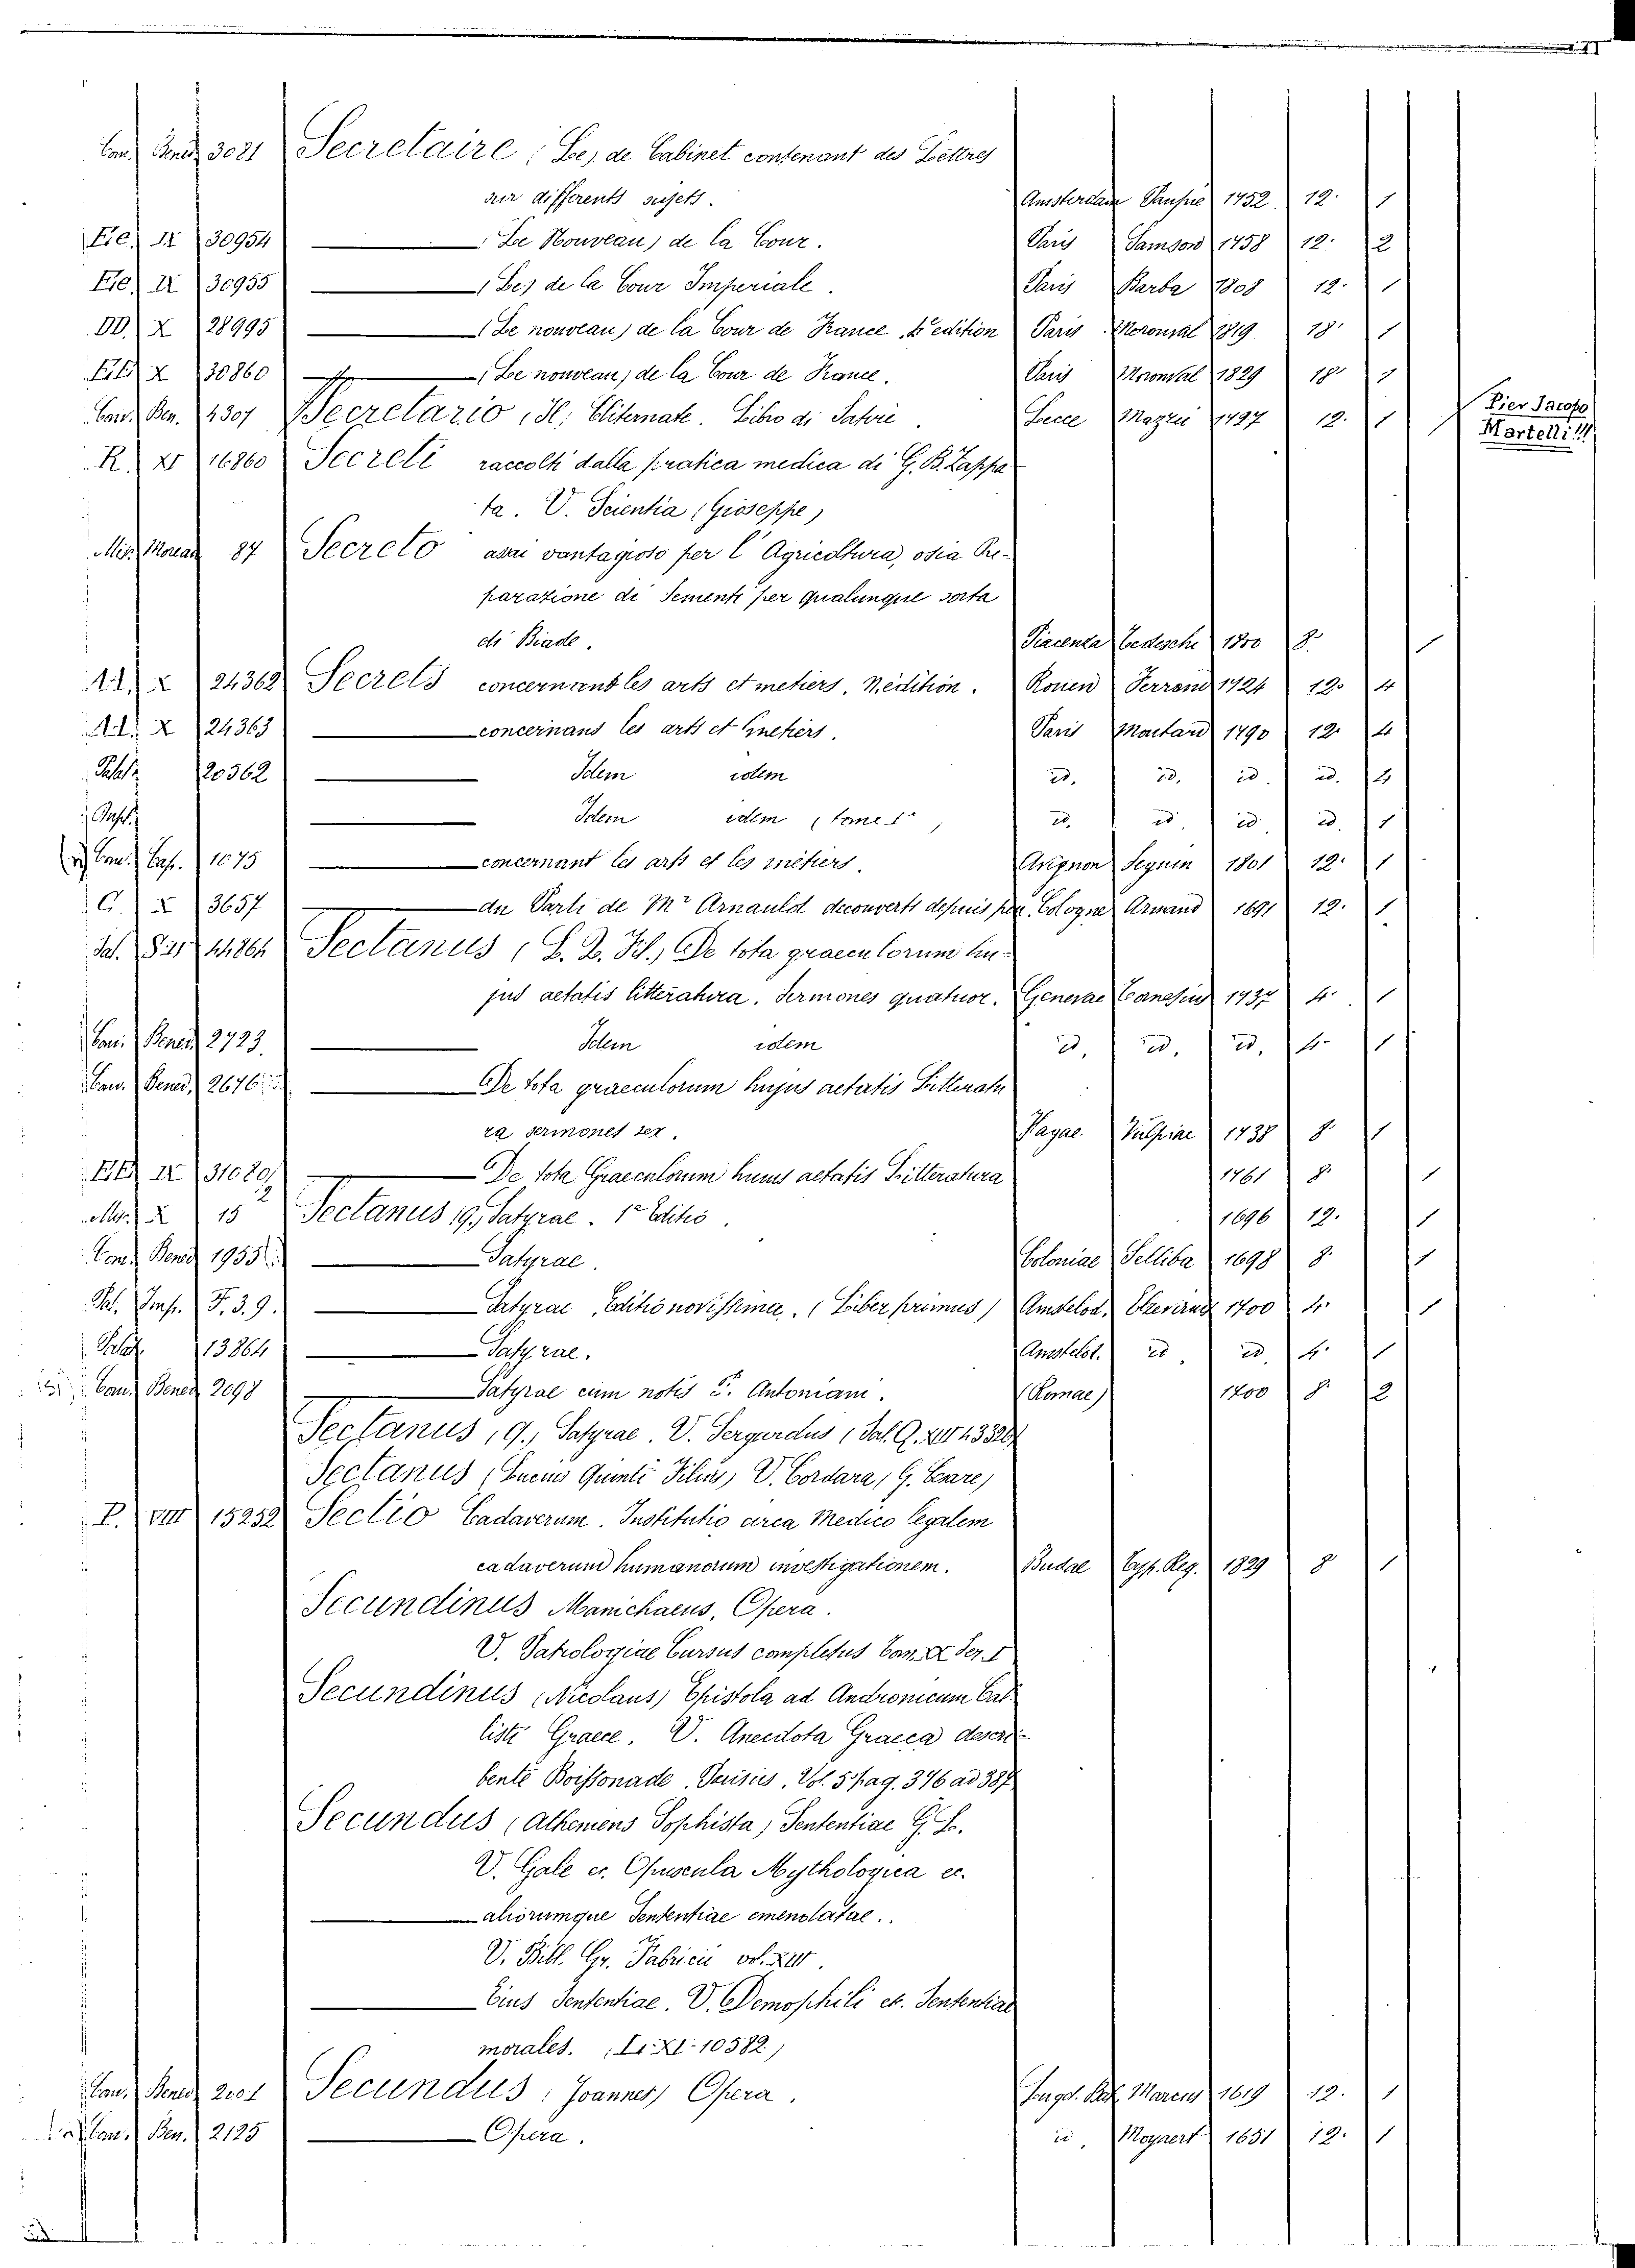 Can. Bened. 3021 Secretaire (Le) de Cabinet contenant des Lettres
sur differents sujets. Amsterdam 1752. 12. 1
EE. IX 30954 (Le Nouveau) de la Cour. Paris Samson 1758 12. 2
EE. IX 30955 (Le) de la Cour Imperiale. Paris Barba 1808 12. 1
DD. X 28995 (Le nouveau) de la Cour de France, edition Paris Moronval 1819 18. 1
X 30860 (Le nouveau) de la Cour de France. Paris Moronval 1829 18. 1
Can. Ben. 4307 Secretario, Il, Cliternate. Libro di Satire. Lecce Mazzei 12. 1 Pier Jacopo
Martelli!!!
R. XI 16860 Secreti raccolti dalla pratica medica di G. B. Zappa
ta. V. Scientia (Gioseppe)
Mis. Morean 87 Secreto assai vantagioso per l'Agricoltura, osia Pre-
parazione di Sementi per qualunque sorta
di Biade. Piacenza Tedeschi 1800 8. 1
X 24362 Secrets concernant les arts et metiers. edition. Rouen Ferrand 1724 12. 4
X 24363 concernans les arts et metiers. Paris 1790 12. 4
Palat. 20362 Idem idem id. id. id. id. 4
Idem idem (tome I) id. id. id. id. 1
Can. Cap. 1075 concernant les arts et les métiers. Avignon Seguin 1801 12. 1
C. X 3657 du Parti de Mr Arnauld decouverts depuis peu. Cologne Armand 1691 12. 1
Sectanus (L. Q. Fil.) De tota graeculorum hu-
jus aetatis litteratura. Sermones quatuor. Genevae 1737 4. 1
Can. Bened. 2723. Idem idem id. id. id. 4. 1
Can. Bened. 2676 De tota graeculorum hujus aetatis Litteratu
ra sermones sex. Hagae Vulpiae 1738 8. 1
IX 31080/2 De tota Graeculorum hujus aetatis Litteratura 1761 8. 1
X 15 Sectanus (Q.) Satyrae. 1ª Editio. 1696 12. 1
Can. Bened. 1955 Satyrae. Coloniae Selliba 1698 8. 1
Pal. Imp. F. 3. 9. Satyrae, Editio novissima. (Liber primus) Amstelod. Elzevirius 1700 4. 1
Palat. 13864 Satyrae. Amstelod. id. id. 4. 1
Can. Bened. 2098 Satyrae cum notis P. Antoniani. (Romae) 1700 8. 2
Sectanus (Q.) Satyrae. V. Sergardus
Sectanus (Lucius Quinti Filius) V. Cordara (G. Cesare)
P. VIII 15252 Sectio Cadaverum. Institutio circa Medico legalem
cadaverum humanorum investigationem. Budae Typ. Reg. 1829 8 1
Secundinus Manichaeus, Opera.
V. Patrologiae Cursus completus Ser. I
Secundinus (Nicolaus) Epistola ad Andronicum Cal
listi Graece. V. Anecdota Graeca descri-
bente Boissonade. Parisiis. Vol. 5 pag. 376 ad 387
Secundus (Atheniens Sophista) Sententiae G. L.
V. Gale ec. Opuscula Mythologica ec.
aliorumque Sententiae emendatae.
V. Bibl. Gr. Fabricii vol. XIII.
Eius Sententiae. V. Demophili et. Sententiae
morales. (XI. 10582)
Can. Bened. 2001 Secundus (Joannes) Opera. Lugd. Bat. Marcus 1619 12. 1
Can. Ben. 2125 Opera. id. Moyaert 1651 12. 1